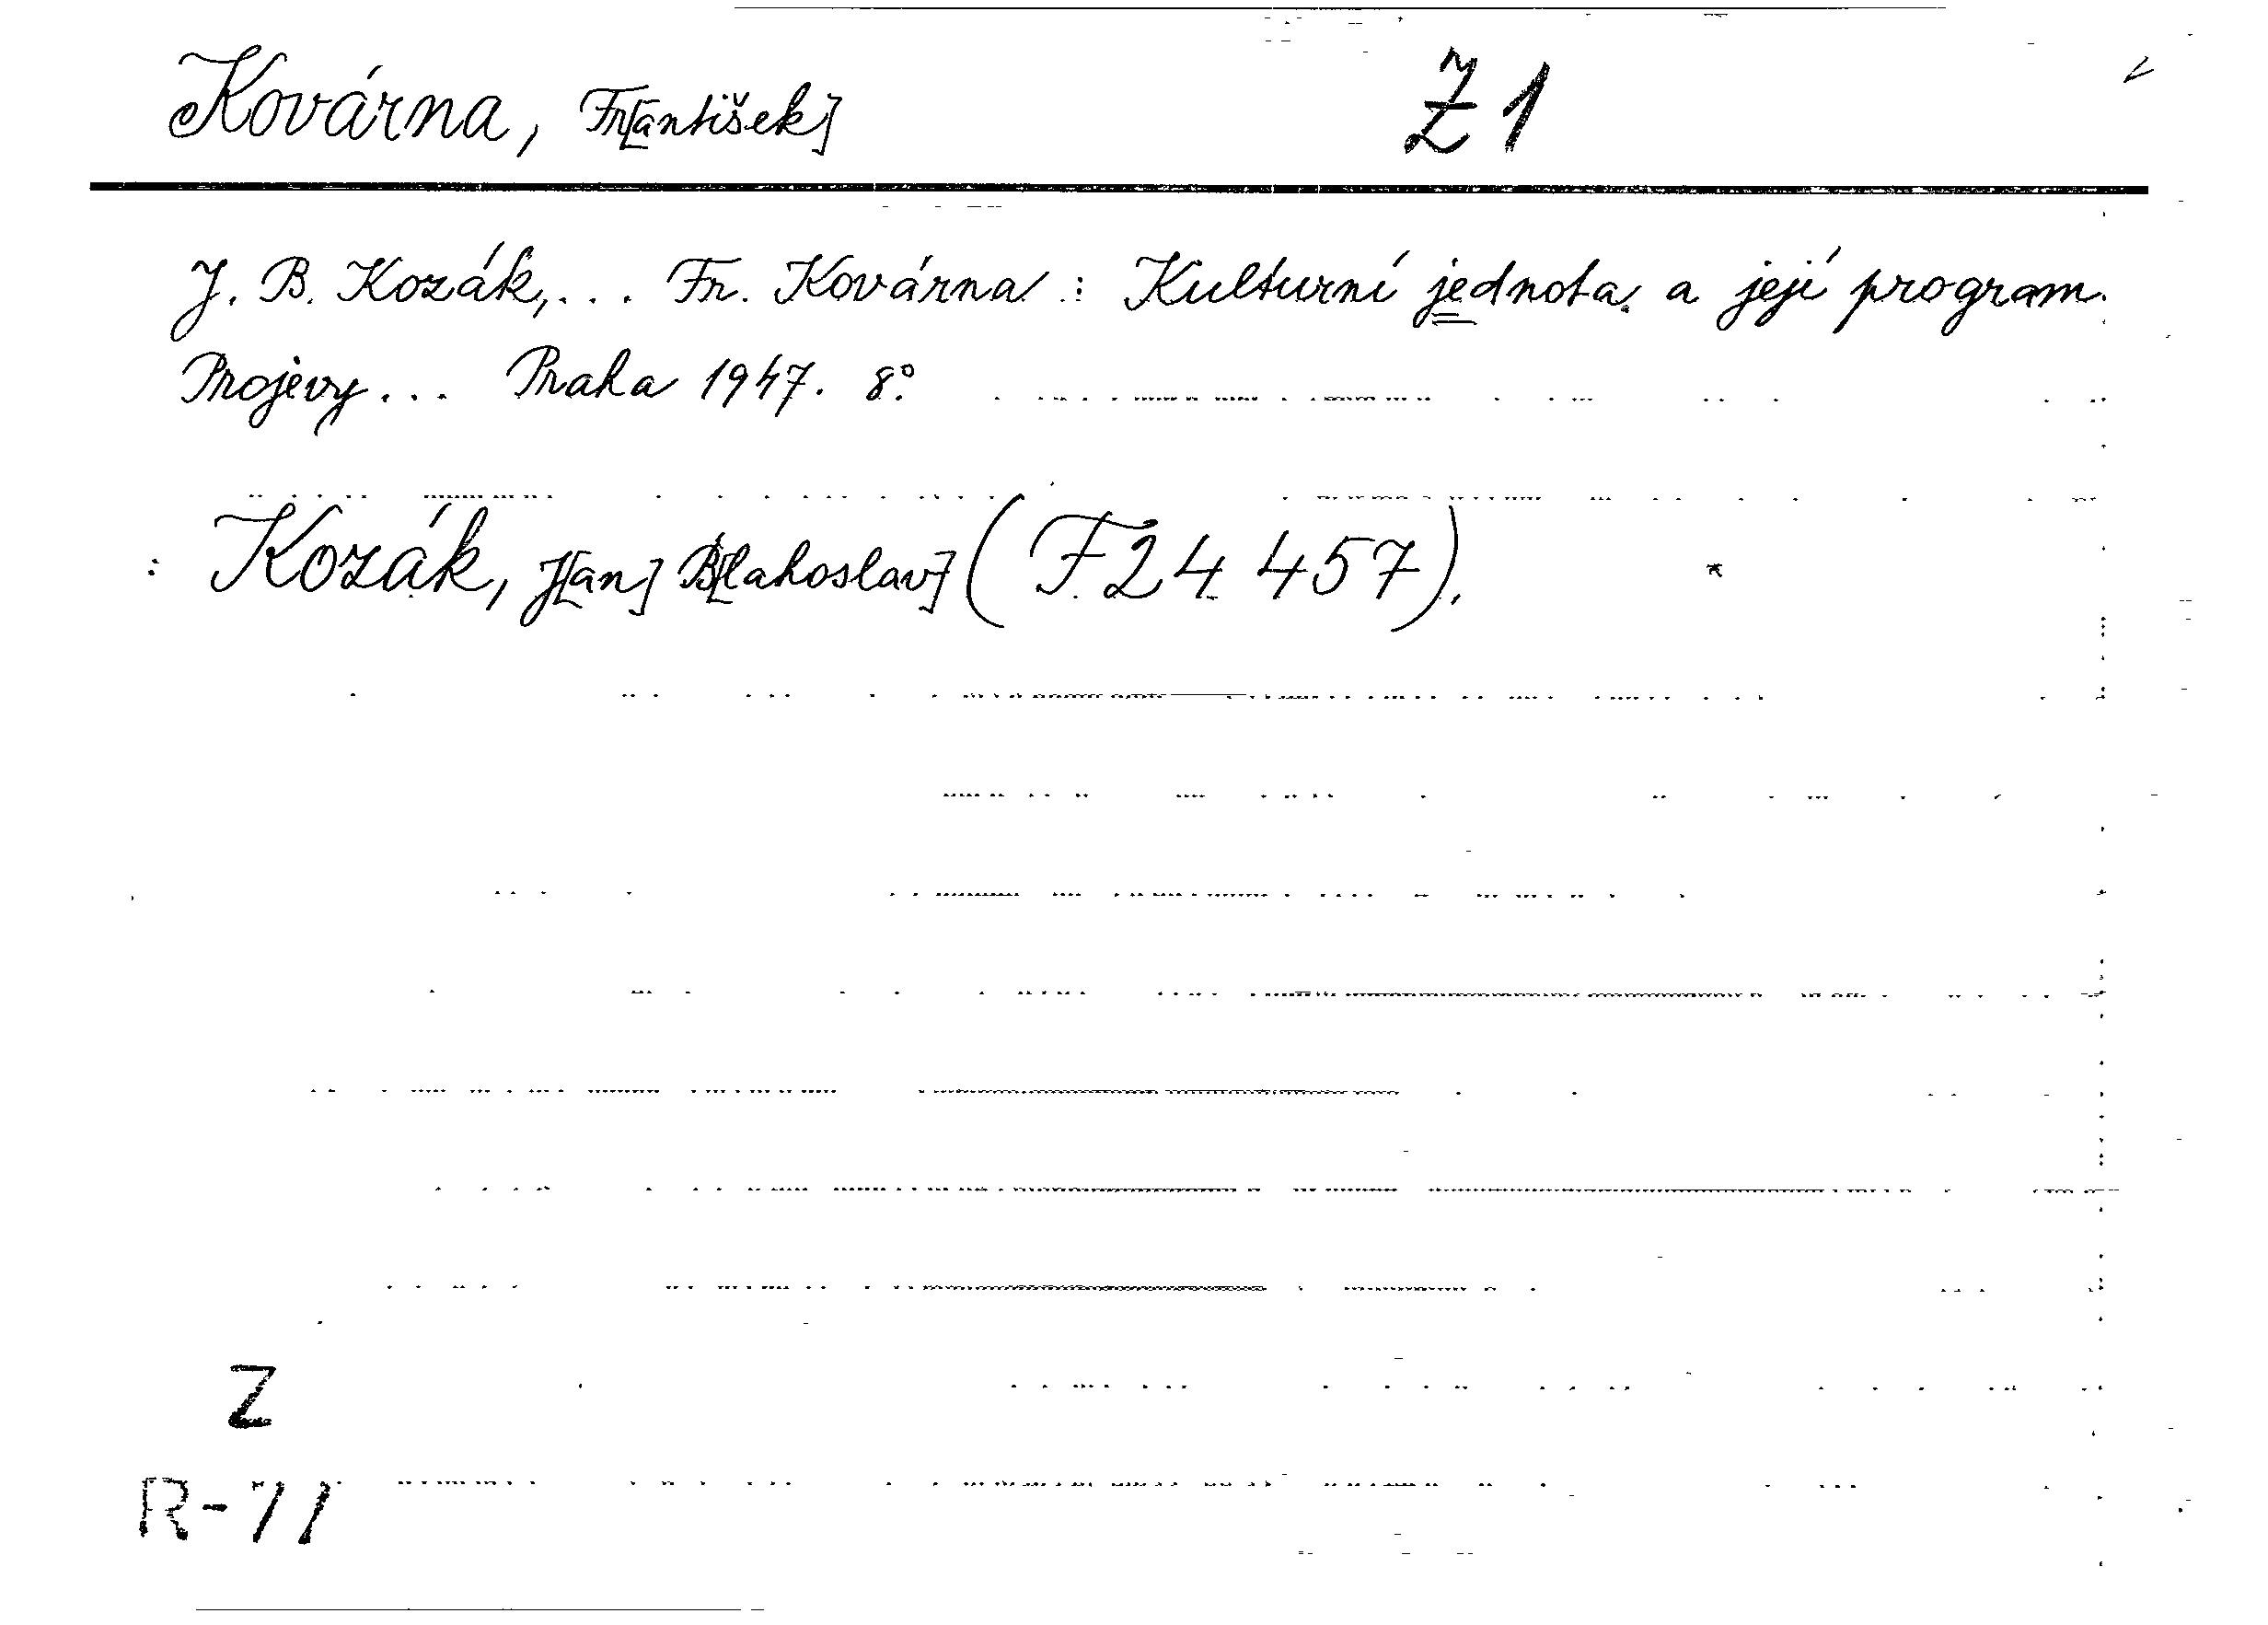 Kovárna, Fr[antišek] Ž 1
J. B. Kozák, ... Fr. Kovárna : Kulturní jednota a její program.
Projevy ... Praha 1947. 8°.
: Kozák, J[an] B[lahoslav] (F 24 457).
Z
R-71